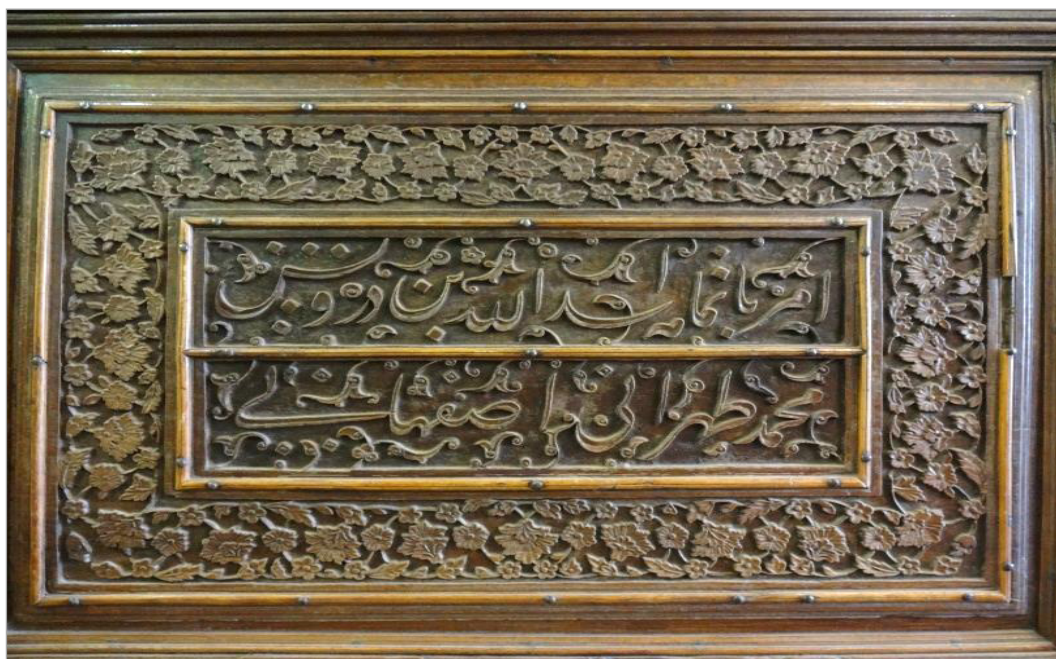 امر بانمایه عبدالله بن درویش
محمد طهرانی اصفهانی